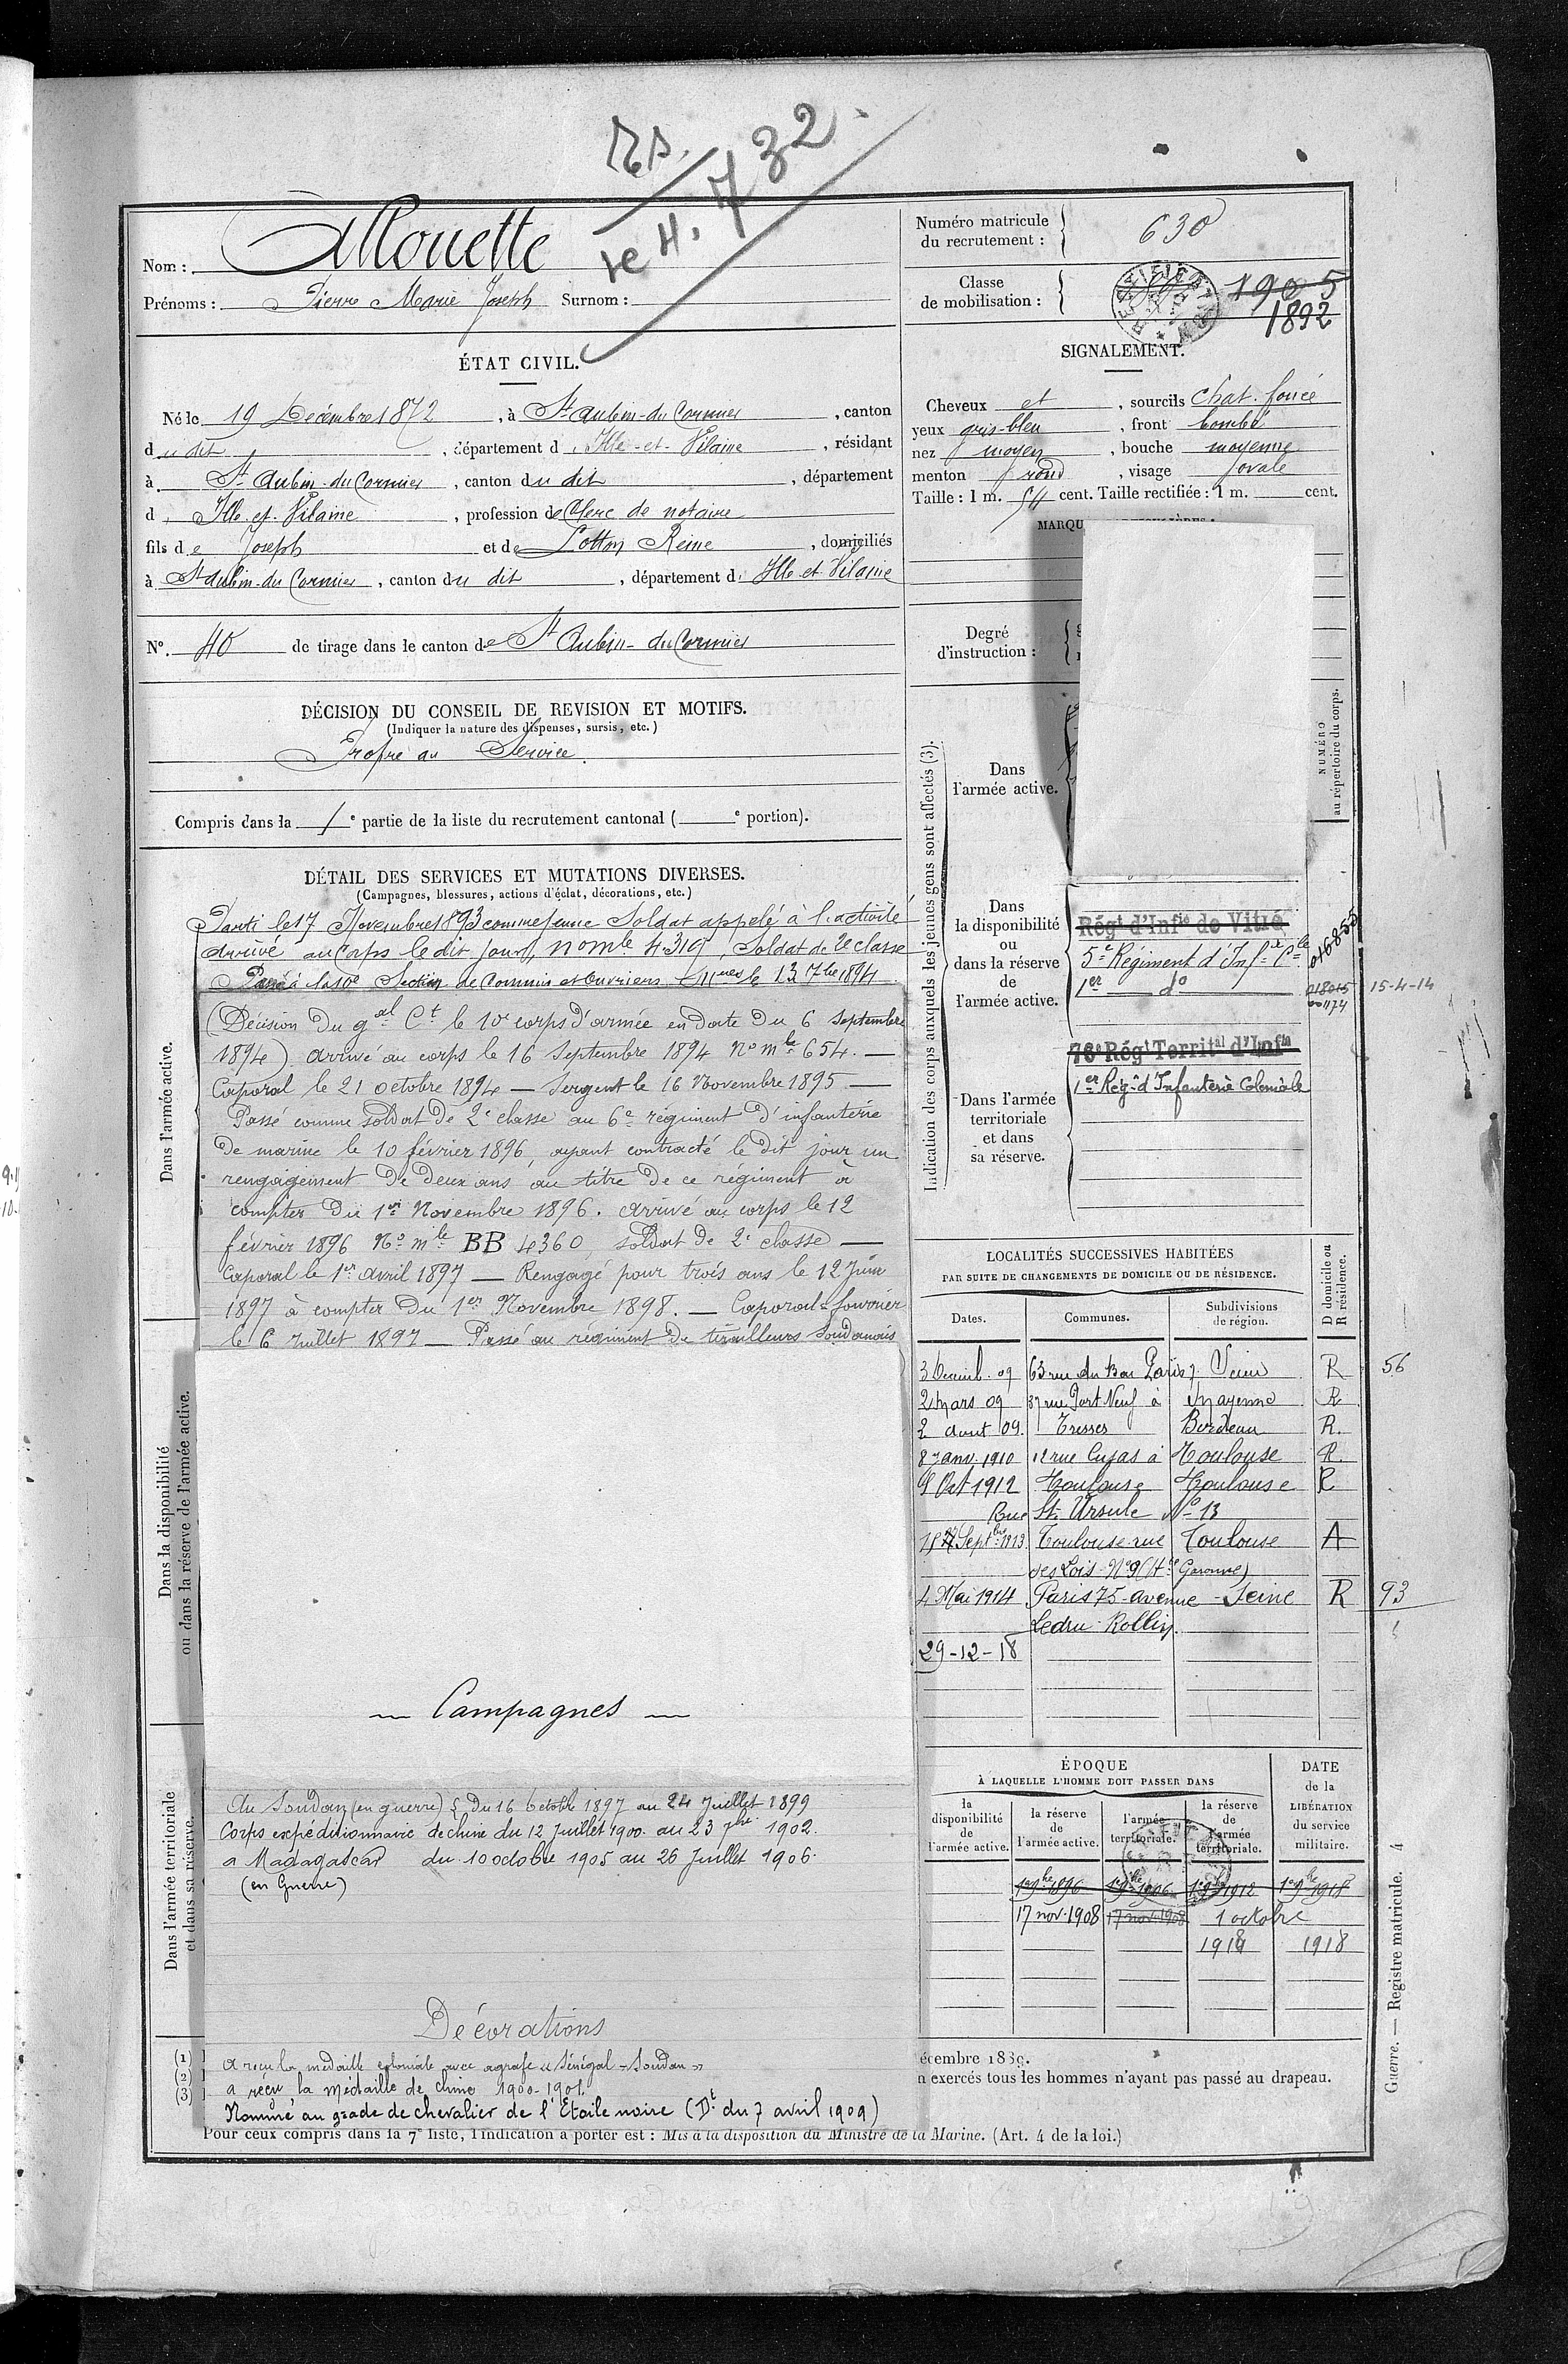 732
Nom : Mouette
Prénoms : Pierre Marie Joseph Surnom :
ÉTAT CIVIL.
Né le 19 Décembre 1872, à St Aubin-du Cormier, canton
du dit, département d Ille-et-Vilaine, résidant
à St Aubin-du Cormier, canton du dit, département
d Ille et Vilaine, profession de Clerc de notaire
fils de Joseph et de Lotton Reine, domiciliés
à St Aubin-du Cormier, canton du dit, département d. Ille et Vilaine
N°. 40 de tirage dans le canton de St Aubin-du Cormier
DÉCISION DU CONSEIL DE REVISION ET MOTIFS.
(Indiquer la nature des dispenses, sursis, etc.)
Propre au Service.
Compris dans la 1e partie de la liste du recrutement cantonal ( e portion).
DÉTAIL DES SERVICES ET MUTATIONS DIVERSES.
(Campagnes, blessures, actions d'éclat, décorations, etc.)
Dans l'armée active.
Parti le 17 Novembre 1893 comme jeune Soldat appelé à l'activité
arrivé au Corps le dit jour, nº mle 4319, Soldat de 2e classe
Passé à la 10e Section de Commis et Ouvriers le 13 7bre 1894
(Décision du gal Ct le 10e corps d'armée en date du 6 Septembre
1894) arrivé au corps le 16 Septembre 1894 No mle 654. —
Caporal le 21 octobre 1894 — Sergent le 16 Novembre 1895 —
Passé comme soldat de 2e classe au 6e régiment d'infanterie
de marine le 10 février 1896, ayant contracté le dit jour un
rengagement de deux ans au titre de ce régiment à
compter du 1er Novembre 1896. arrivé au corps le 12
février 1896 No mle BB 4360, soldat de 2e classe —
Caporal le 1er avril 1897 — Rengagé pour trois ans le 12 Juin
1897 à compter du 1er Novembre 1898. — Caporal-fourrier
le 6 Juillet 1897 — Passé au régiment de tirailleurs Soudanais
Dans la disponibilité
ou dans la réserve de l'armée active.
— Campagnes —
Dans l'armée territoriale
et dans sa réserve.
Au Soudan (en guerre) { Du 16 octobre 1897 au 24 Juillet 1899
Corps expéditionnaire de chine du 12 Juillet 1900 au 23 7bre 1902.
a Madagascar du 10 octobre 1905 au 26 Juillet 1906.
(en Guerre)
Décorations
(1)
(2)
(3)
a reçu la médaille coloniale avec agrafe « Sénégal - Soudan »
a reçu la médaille de chine 1900-1901.
Nommé au grade de chevalier de l'Etoile noire (Dt du 7 avril 1909)
Pour ceux compris dans la 7e liste, l'indication à porter est : Mis à la disposition du Ministre de la Marine. (Art. 4 de la loi.)
Numéro matricule
du recrutement : 630
Classe
de mobilisation : 1905
1892
SIGNALEMENT.
Cheveux et, sourcils chat. foncé
yeux gris-bleu, front bombé
nez moyen, bouche moyenne
menton rond, visage ovale
Taille : 1 m. 54 cent. Taille rectifiée : 1 m. cent.
MARQU
Degré
d'instruction :
Indication des corps auxquels les jeunes gens sont affectés (3).
NUMÉRO
au répertoire du corps.
Dans
l'armée active.
Dans
la disponibilité
ou
dans la réserve
de
l'armée active.
Régt d'Infie de Vitré
5e Régiment d'Infie Cle 016855
1er do 018015 15-4-14
001174
Dans l'armée
territoriale
et dans
sa réserve.
76e Régt Territal d'Infie
1er Régt d'Infanterie Coloniale
LOCALITÉS SUCCESSIVES HABITÉES
PAR SUITE DE CHANGEMENTS DE DOMICILE OU DE RÉSIDENCE.
Dates. Communes. Subdivisions
de région. D domicile ou
R résidence.
3 09 63 rue du Bac Paris 7 Seine R 56
2 mars 09 37 rue Port Neuf à Mayenne R
2 aout 09. Tresses Bordeau R.
8 Janv. 1910 12 rue Cujas à Toulouse R.
9 Oct 1912 Toulouse Toulouse R
Rue Ste Ursule No 13
18 Septbre 1913 Toulouse rue Toulouse A
des Lois No 9 (Hte Garonne)
4 Mai 1914 Paris 75 avenue Seine R 93
Ledru-Rollin.
29-12-18
ÉPOQUE
À LAQUELLE L'HOMME DOIT PASSER DANS
DATE
de la
LIBÉRATION
du service
militaire.
la
disponibilité
de
l'armée active.
la réserve
de
l'armée active.
l'armée
territoriale.
la réserve
de
l'armée
territoriale.
1er 9bre 1896 1er 9bre 1906 1er 9bre 1912 1er 9bre 1918
17 nov. 1908 17 nov. 1908 1 octobre
1914 1918
écembre 1889.
n exercés tous les hommes n'ayant pas passé au drapeau.
Guerre. — Registre matricule. 4